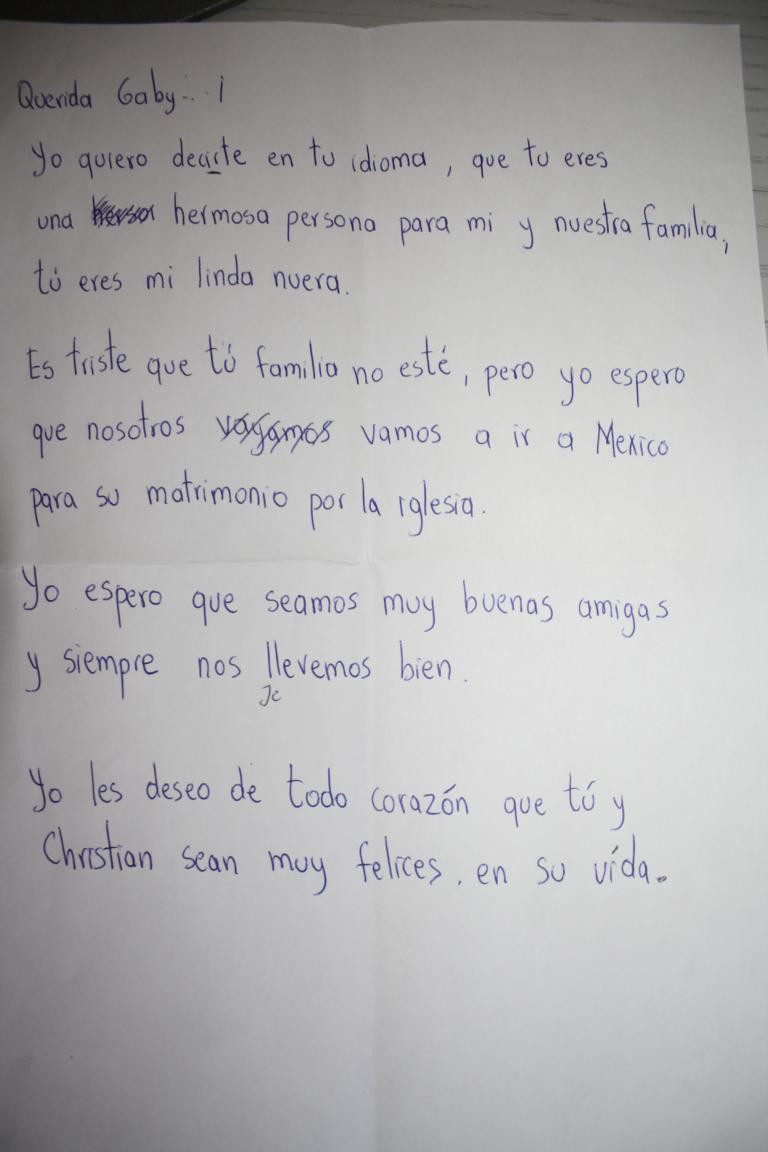 Querida Gaby:. i
Yo quiero decirte en tu idioma, que tu eres
una hermosa persona para mi y nuestra familia,
tú eres mi linda nuera.
Es triste que tú familia no esté, pero yo espero
que nosotros vayamos vamos a ir a Mexico
para su matrimonio por la iglesia.
Yo espero que seamos muy buenas amigas
y siempre nos llevemos bien.
Je
Yo les deseo de todo corazón que tú y
Christian sean muy felices. en su vída.